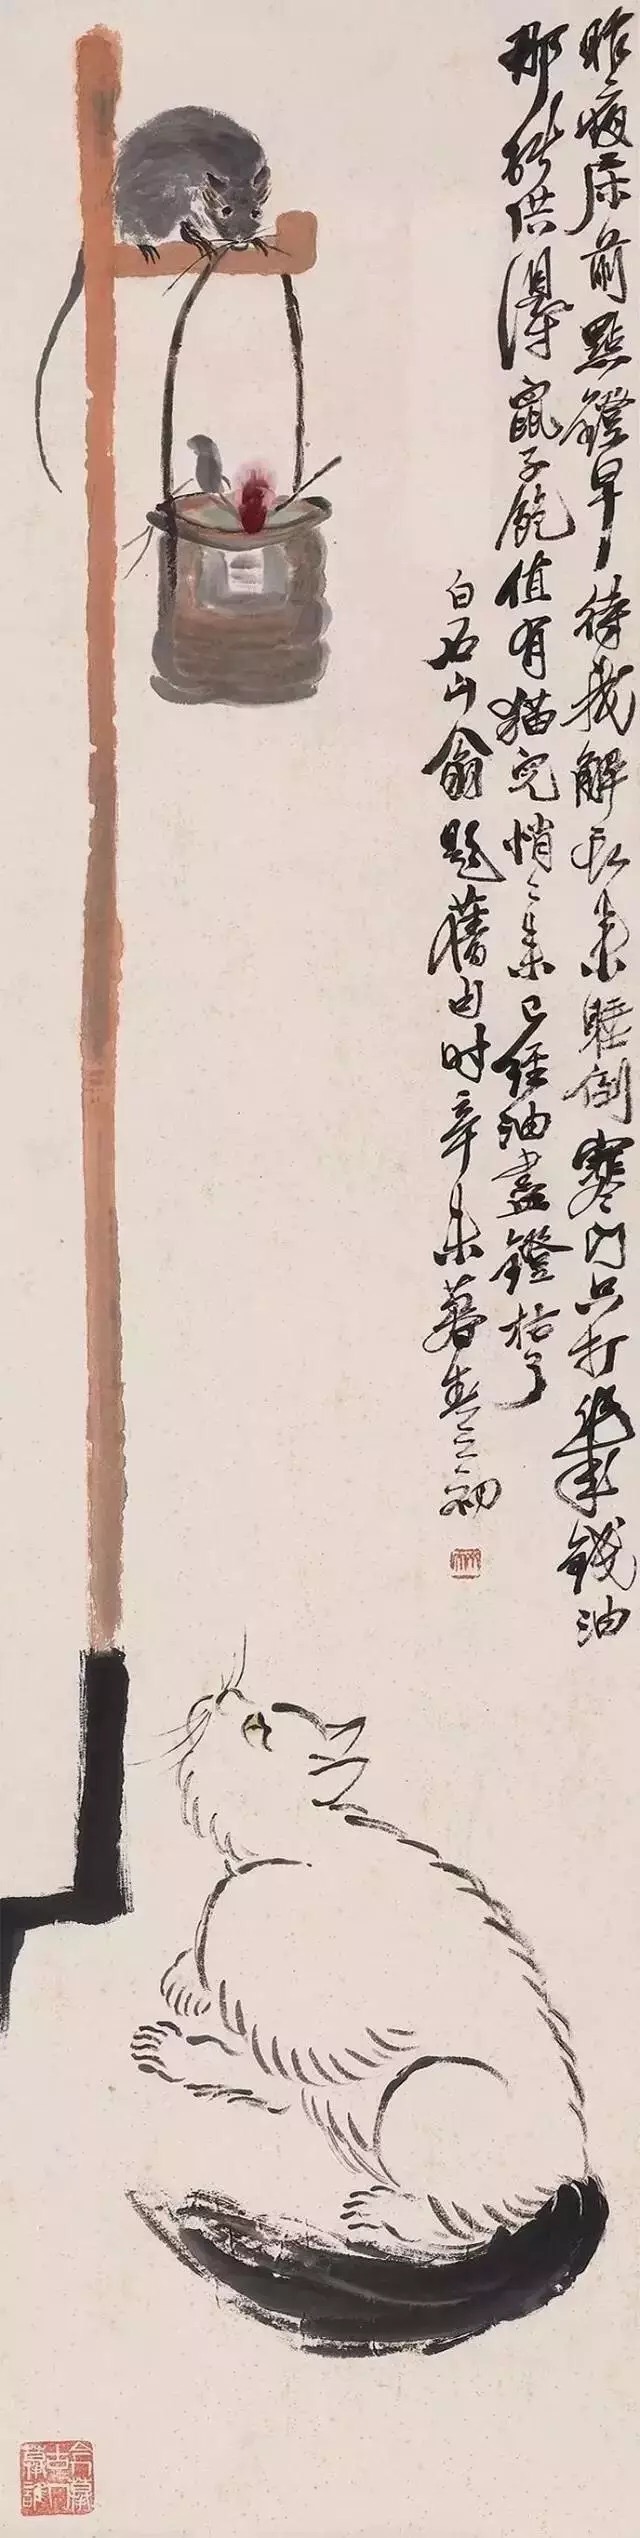 昨夜床前點鐙早待我解衣來睡倒寒門只打一錢油
那能供得鼠子飽值有猫兒悄〻來已經油盡鐙枯了
白石山翁題舊句時辛未暮春之初